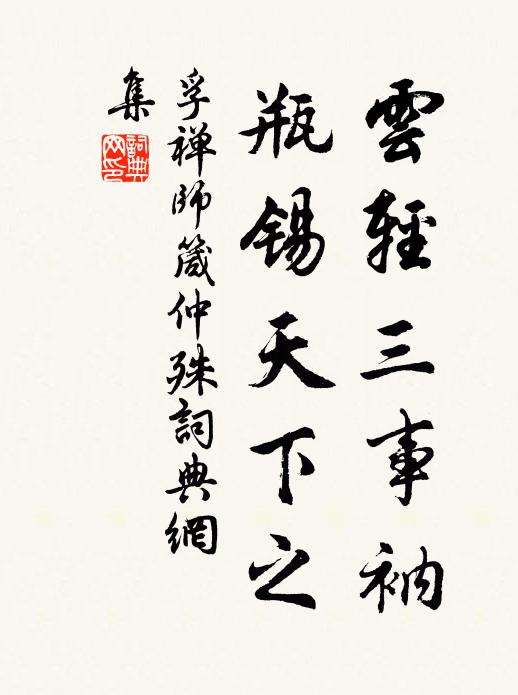 雲輕三事衲
瓶錫天下之
孚禪師箴仲殊詞典網
集
詞典網印